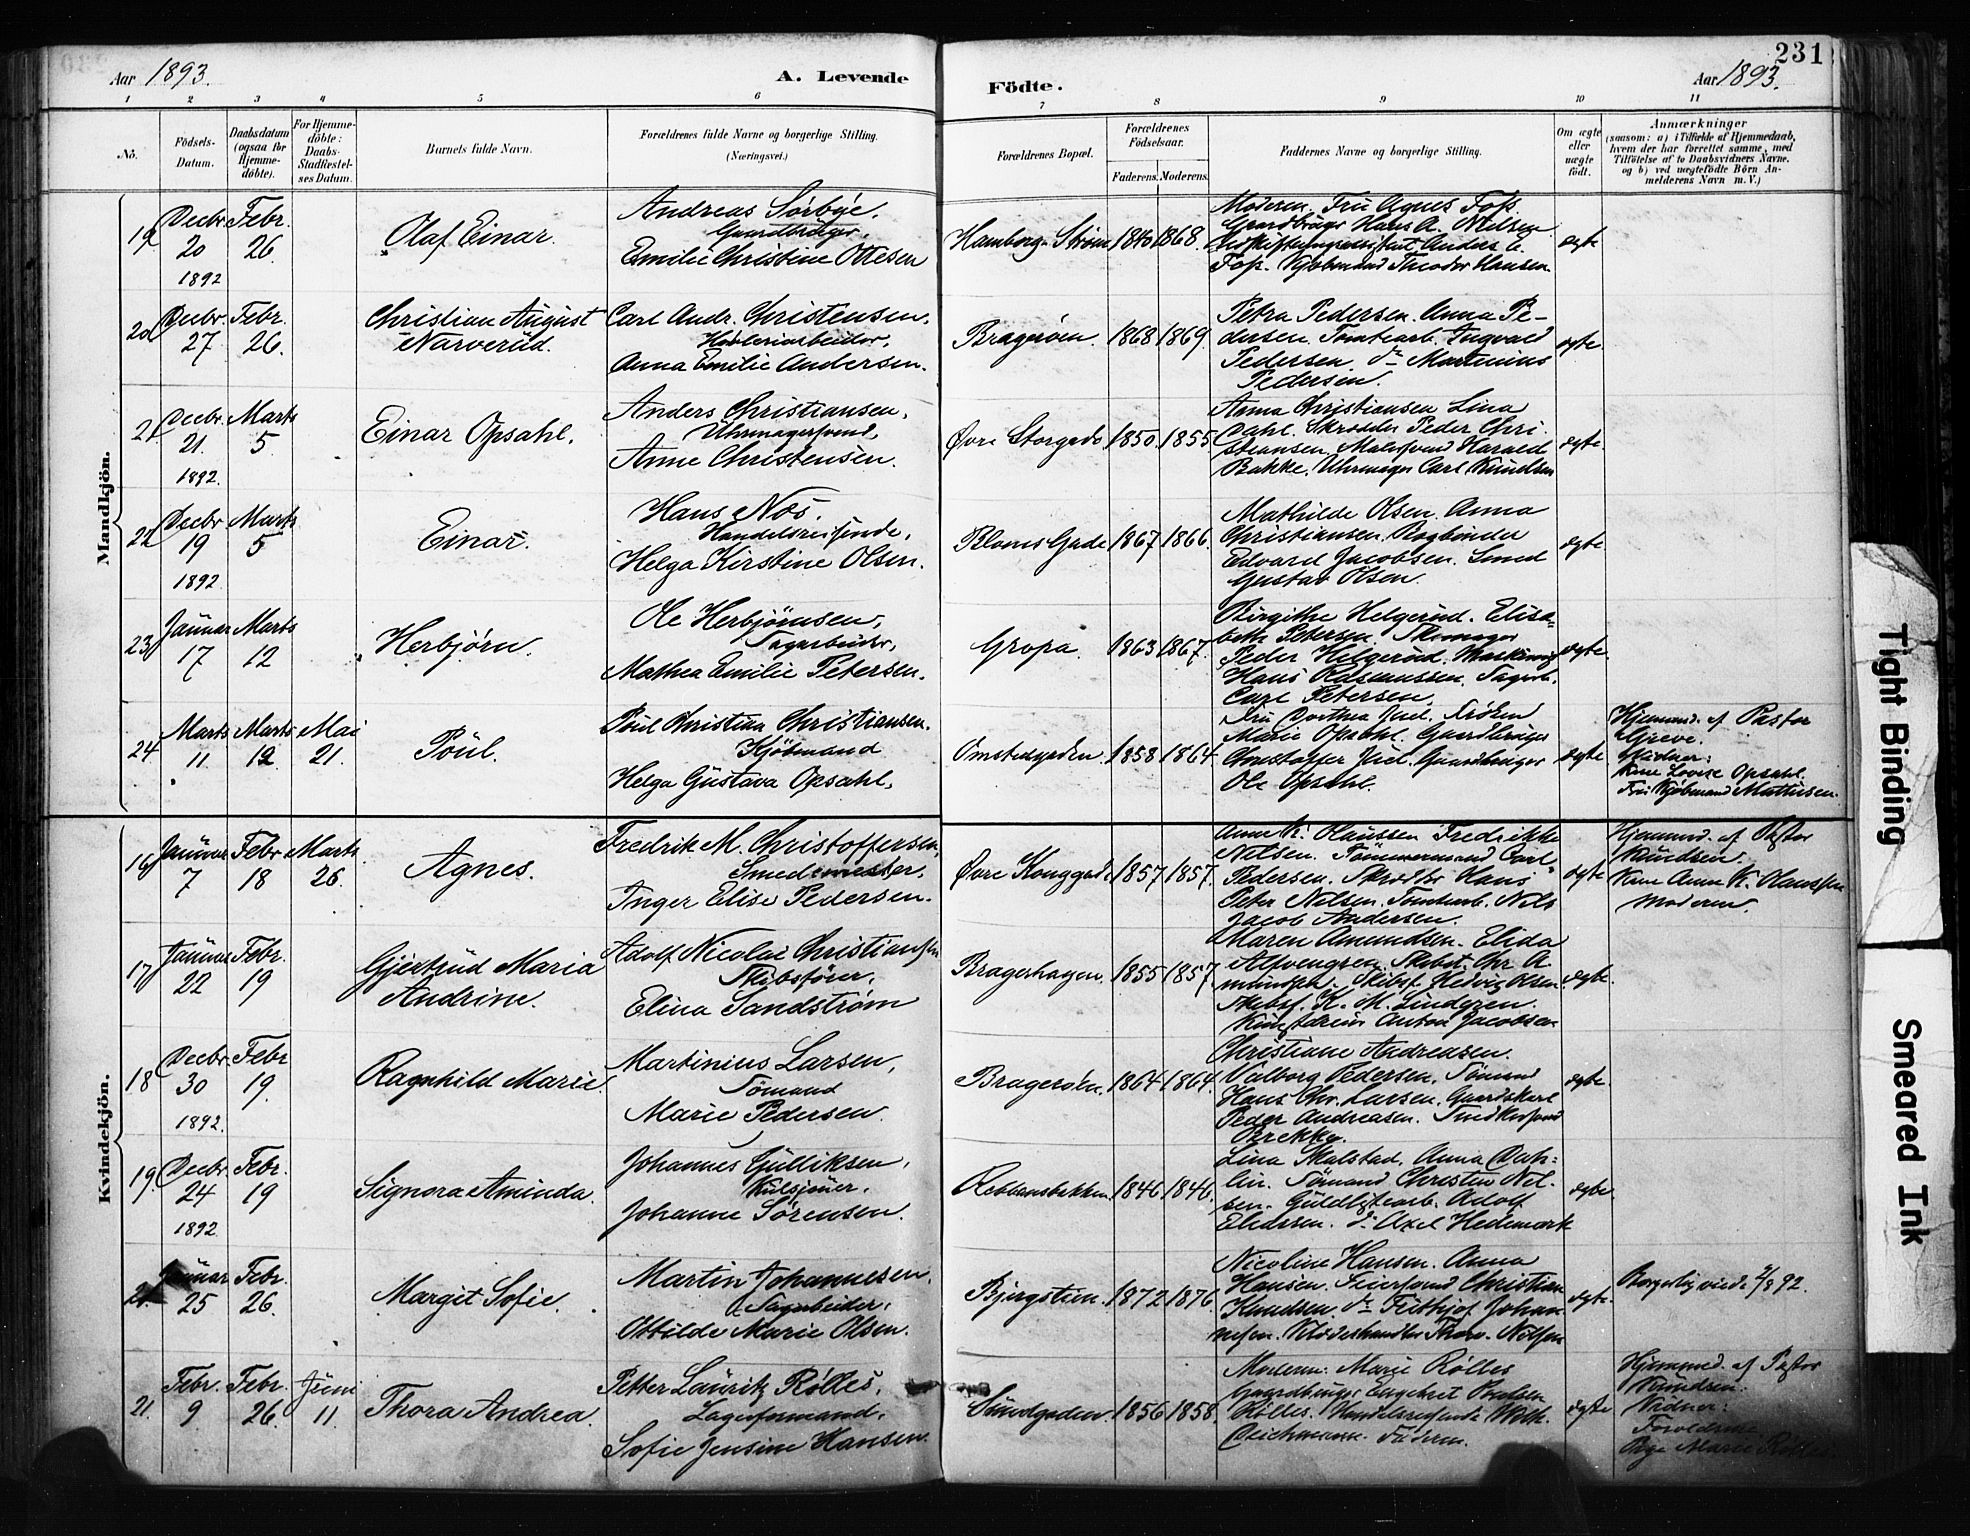 231
Aar 1893.
A. Levende
Födte.
Aar 1893.
1 2 3 4 5 6 7 8 9 10 11
No.
Födsels-
Datum.
Daabsdatum
(ogsaa for
Hjemme-
döbte).
For Hjemme-
döbte:
Daabs-
Stadfæstel-
ses Datum.
Barnets fulde Navn.
Forældrenes fulde Navne og borgerlige Stilling.
(Næringsvei.)
Forældrenes Bopæl.
Forældrenes
Födselsaar.
Faderens. Moderens.
Faddernes Navne og borgerlige Stilling.
Om ægte
eller
uægte
födt.
Anmærkninger
(saasom: a) i Tilfælde af Hjemmedaab,
hvem der har forrettet samme, med
Tilföielse af to Daabsvidners Navne,
og b) ved uægtefödte Börn An-
melderens Navn m. V.)
Mandkjön.
19 Decbr. 20 1892 Febr. 26.
Olaf Einar.
Andreas Sørbye,
Gaardbruger,
Emilie Christine Ottesen
Hamborg-Strøm 1840 1868.
Moderen. Fru Agnes Foss
Gaardbruger Hans A. Nilsen
Anders A.
Foss. Kjøbmand Theodor Hansen
ægte
20 Decbr. 27 Febr. 26.
Christian August
Narverud.
Carl Andr. Christensen.
Høvleriarbeider,
Anna Emilie Andersen.
Bragerøen. 1868 1869.
Petra Pedersen. Anna Pe-
dersen. Tomtearb. Ingvald
Pedersen. do Martinius
Pedersen.
ægte.
21 Decbr. 21. 1892. Marts 5.
Einar Opsahl.
Anders Christiansen,
Uhrmagersvend,
Anne Christensen.
Øvre Storgade 1850. 1855
Anna Christiansen Lina
Dahl. Skrædder Peder Chri
stiansen, Malersvend Harald
Bakke. Uhrmager Carl Knudsen
ægte.
22 Decbr. 19 1892 Marts 5
Einar.
Hans Næs.
Handelsreisende,
Helga Kirstine Olsen.
Bloms Gade 1867 1866.
Mathilde Olsen. Anna
Christiansen. Bogbinder
Edvard Jacobsen. Smed
Gustav Olsen.
ægte
23. Januar 17 Marts 12
Herbjørn.
Ole Herbjørnsen,
Sagarbeider,
Mathea Emilie Petersen.
Gropa. 1863 1867.
Birgithe Helgerud. Elisa-
beth Petersen. Skomager
Peder Helgerud. Maskinist
Hans Rasmussen. Sagarb.
Carl Petersen.
ægte.
24 Marts 11. Marts 12. Mai 21.
Poul.
Poul Christian Christiansen.
Kjøbmand
Helga Gustava Opsahl.
Omstedgaden. 1858 1864
Fru Dorthea Juel. Frøken
Marie Opsahl. Gaardbruger
Christoffer Juel. Gaardbruger
Ole Opsahl.
ægte
Hjemmed. af Pastor
Greve.
Vidner:
Lovise Opsahl.
Fru Kjøbmand Mathisen.
Kvindekjön.
16 Januar 7 Febr 18 Marts 26.
Agnes.
Fredrik M. Christoffersen,
Smedemester,
Inger Elise Pedersen.
Øvre Konggade 1857 1857.
Anne K. Olaussen Fredrikke
Nilsen. Tømmermand Carl
Pedersen. Skrædder Hans
Peter Nilsen. Tomtearb. Nils
Jacob Andersen.
ægte
Hjemmed. af Pastor
Knudsen.
Anne K. Olaussen
Moderen.
17 Januar 22 Febr. 19
Gjertrud Maria
Andrine.
Adolf Nicolai Christiansen
Skibsfører,
Elina Sandström
Bragerhagen. 1855 1857.
Maren Amundsen. Elida
Alfvengren. Skibst. Chr A
mundsen. Skibsf. Hedvig Olsen.
Skibsf. K. M. Lindgren.
Anton Jacobsen
ægte.
18 Decbr. 30 1892. Febr 19.
Ragnhild Marie.
Martinius Larsen,
Sømand
Marie Pedersen.
Bragerøen. 1864 1864.
Christiane Andreasen.
Valborg Pedersen. Sømand
Hans Chr. Larsen. Gaardskarl
Peder Andreasen.
Brekke.
ægte.
19. Decbr. 24 1892 Febr. 19
Signora Aminda.
Johannes Gulliksen,
Kulsjouer,
Johanne Sørensen.
Rebbansbakken 1846 1846.
Lina Skalstad. Anna Dah-
lin. Sømand Christen Nil-
sen. Guldlistearb. Adolf
Eliassen. do Axel Hedemark
ægte
Januar 25 Febr. 26.
Margit Sofie.
Martin Johannesen,
Sagarbeider,
Ottilde Marie Olsen.
Bjergstien. 1872 1876.
Nicoline Hansen. Anna
Hansen. Feiersvend Christian
Knudsen. do Frithjof Johan-
nesen. Nilsen
ægte.
Borgerlig viede 2/8 92.
21. Febr. 9 Febr. 26. Juni 11.
Thora Andrea.
Petter Lauritz Rølles,
Lagerformand,
Sofie Jensine Hansen.
Sundgaden. 1856 1858
Moderen: Marie Rølles
Gaardbruger Engebret Paulsen
Rølles. Handelsreisende Wilh.
Deichmann. Faderen.
ægte
Hjemmed. af Pastor
Knudsen.
Vidner:
Forældrene
Pige Marie Rølles.
Tight Binding
Smeared Ink